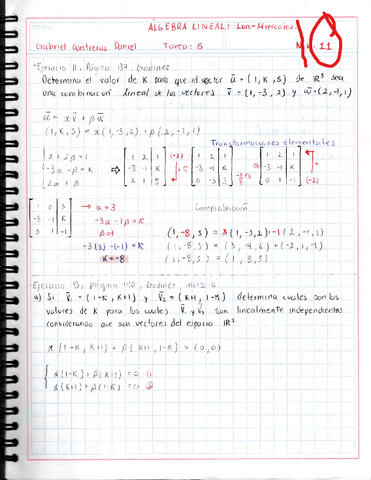 ÁLGEBRA LINEAL: Lun-Miercoles
Gabriel Contreras Daniel Tarea: 5 N.L. 11
Ejercicio 11, Página 139, Grodinez
Determina el valor de K para que el vector ū = (1, K, 5) de ℝ³ sea
una combinación lineal de los vectores v̄ = (1, -3, 2) y w̄ = (2, -1, 1)
ū = α v̄ + β w̄
(1, K, 5) = α(1, -3, 2) + β(2, -1, 1)
Transformaciones elementales
α + 2β = 1
-3α - β = K
2α + β
1 2 1
-3 -1 K
2 1 5
(-2)
1 2 1
-3 -1 K
0 -3 3
1 2 1
-3 -1 K
0 1 -1
(-2)
1 0 3
-3 -1 K
0 1 -1
→ α = 3
-3α - 1β = K
-3(3) -(-1) = K
K = -8
Comprobación
(1, -8, 5) = 3(1, -3, 2) - 1(2, -1, 1)
(1, -8, 5) = (3, -9, 6) + (-2, 1, -1)
(1, -8, 5) = (1, -8, 5)
a) Si V̄₁ = (1-K, K+1) y V̄₂ = (K+1, 1-K) determina cuales son los
valores de K para los cuales V̄₁ y V̄₂ son linealmente independientes
considerando que son vectores del espacio ℝ²
α(1-K, K+1) + β(K+1, 1-K) = (0,0)
α(1-K) + β(K+1) = 0 ①
α(K+1) + β(1-K) = 0 ②